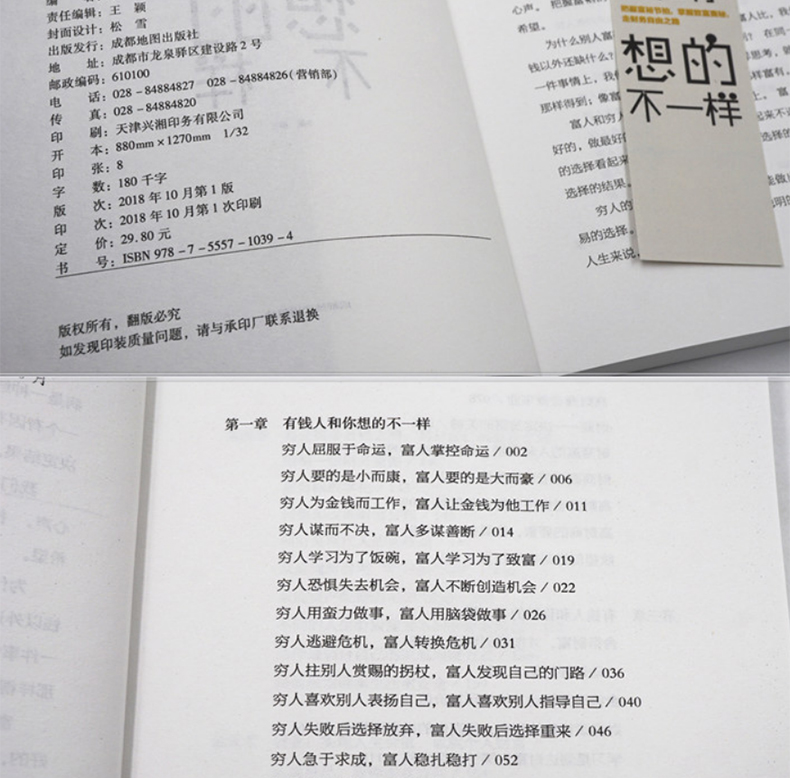 责任编辑：王 颖
封面设计：松 雪
出版发行：成都地图出版社
地 址：成都市龙泉驿区建设路2号
邮政编码：610100
电 话：028-84884827 028-84884826(营销部)
传 真：028-84884820
印 刷：天津兴湘印务有限公司
开 本：880mm×1270mm 1/32
印 张：8
字 数：180千字
版 次：2018年10月第1版
印 次：2018年10月第1次印刷
定 价：29.80元
书 号：ISBN 978-7-5557-1039-4
版权所有，翻版必究
如发现印装质量问题，请与承印厂联系退换
希望。
为什么别人富
钱以外还缺什么？
一件事情上，我
那样得到；像富
富人和穷
好的，做最好的
的选择看起来
选择的结果。
穷人的
易的选择。
人生来说，
想的
不一样
第一章 有钱人和你想的不一样
穷人屈服于命运，富人掌控命运/002
穷人要的是小而康，富人要的是大而豪/006
穷人为金钱而工作，富人让金钱为他工作/011
穷人谋而不决，富人多谋善断/014
穷人学习为了饭碗，富人学习为了致富/019
穷人恐惧失去机会，富人不断创造机会/022
穷人用蛮力做事，富人用脑袋做事/026
穷人逃避危机，富人转换危机/031
穷人拄别人赏赐的拐杖，富人发现自己的门路/036
穷人喜欢别人表扬自己，富人喜欢别人指导自己/040
穷人失败后选择放弃，富人失败后选择重来/046
穷人急于求成，富人稳扎稳打/052